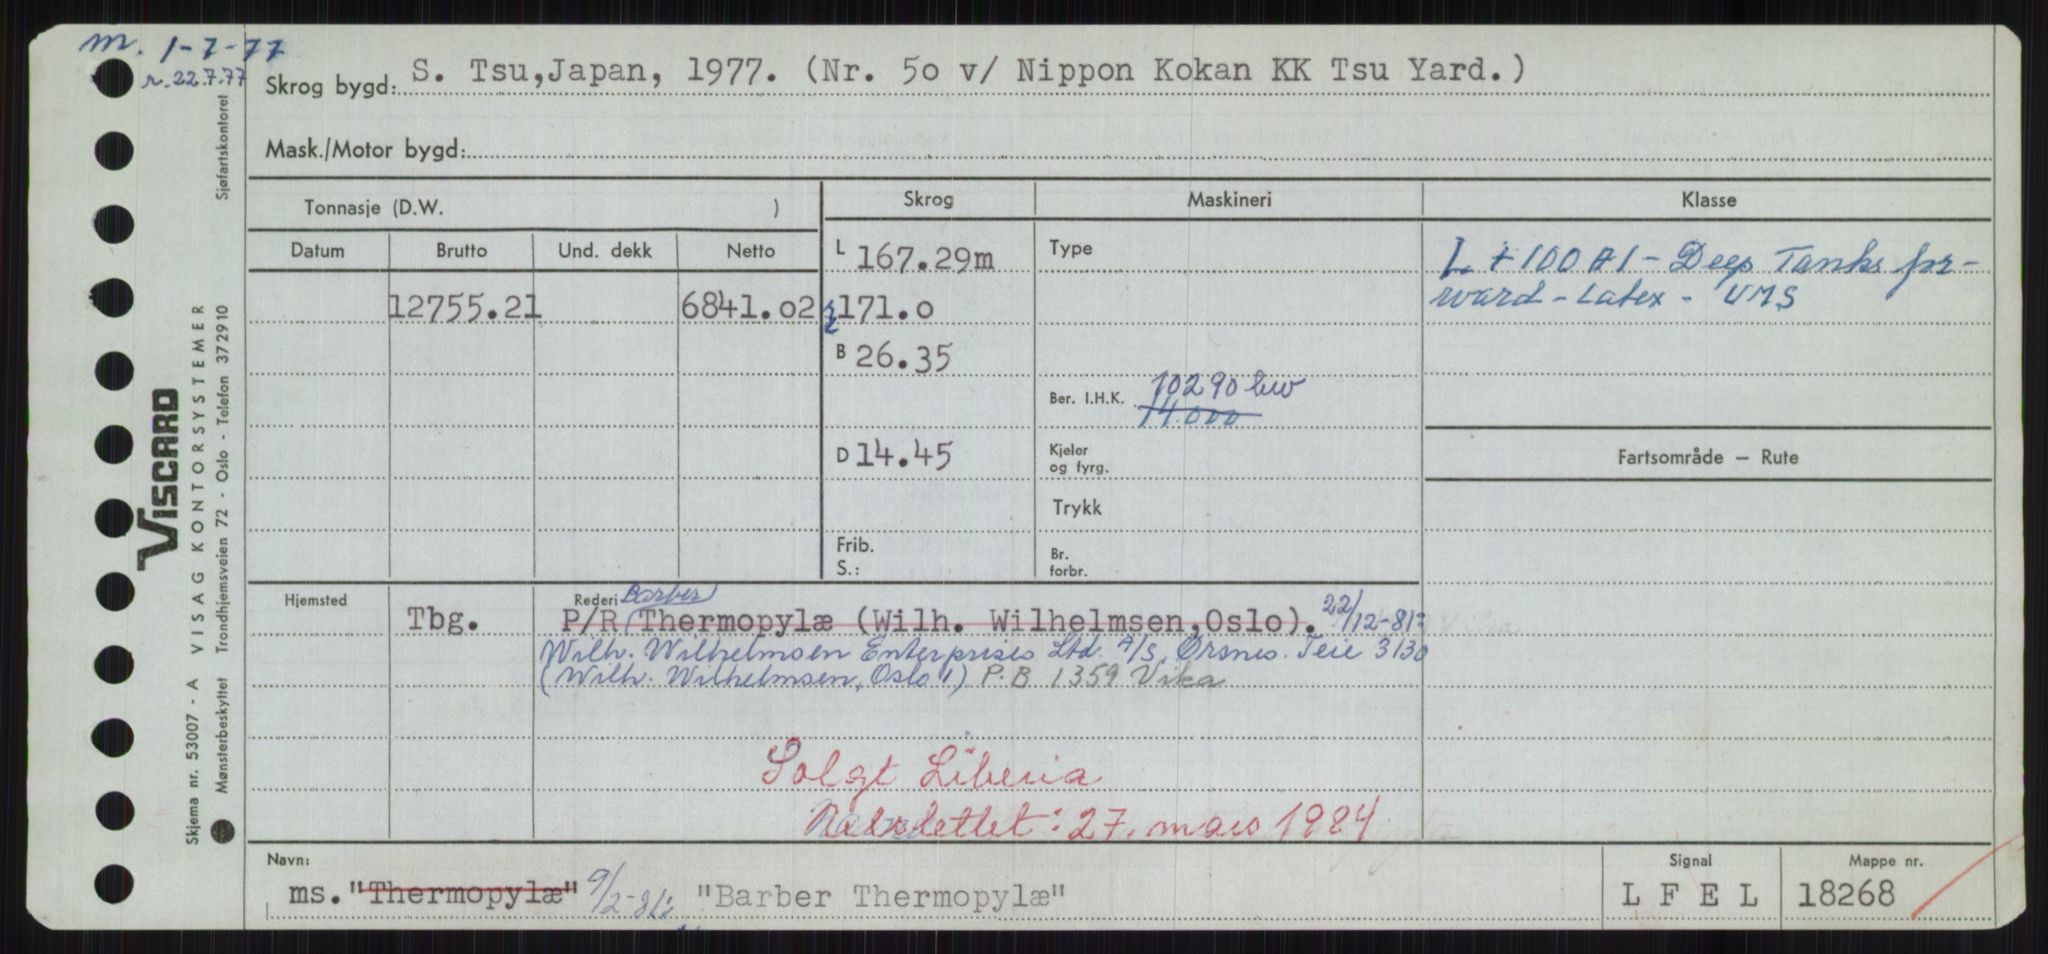 m. 1-7-77
r. 22.7.77
Skrog bygd: S. Tsu,Japan, 1977. (Nr. 5o v/ Nippon Kokan KK Tsu Yard.)
Mask./Motor bygd:
Tonnasje (D.W. )
Skrog Maskineri Klasse
Datum Brutto Und. dekk Netto
L 167.29m
Type
L + 100 A1 - Deep Tanks for-
ward - Latex - UMS
12755.21 6841.o2 171.o
B 26.35
Ber. I.H.K. 10290 kw
14.000
D 14.45
Kjeler
og fyrg.
Fartsområde — Rute
Trykk
Frib.
S.:
Br.
forbr.
Hjemsted Tbg.
Rederi Barber
P/R Thermopylæ (Wilh. Wilhelmsen,Oslo). 22/12-81:
Wilh. Wilhelmsen Enterprises Ltd. A/S, Ørsnes. Teie 3130
(Wilh. Wilhelmsen, Oslo 1) P.B 1359 Vika
Solgt Liberia
slettet: 27. mars 1984
Navn:
ms. "Thermopylæ" 9/2-81: "Barber Thermopylæ"
Signal
L F E L
Mappe nr.
18268
Sjøfartskontoret
VISCARD
VISAG KONTORSYSTEMER
Trondhjemsveien 72 - Oslo - Telefon 372910
Skjema nr. 53007 - A
Mønsterbeskyttet